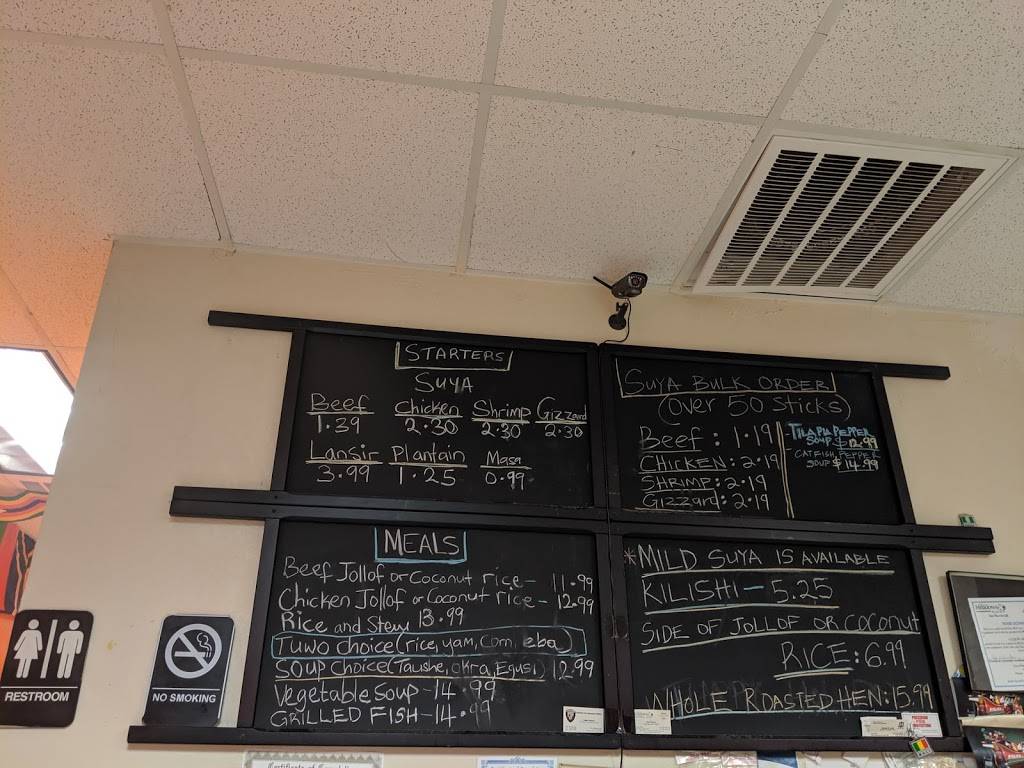 STARTERS
SUYA
Beef Chicken Shrimp Gizzard
1.39 2.30 2.30 2.30
Lansir Plantain Masa
3.99 1.25 0.99
SUYA BULK ORDER
(Over 50 Sticks)
Beef: 1.19
CHICKEN: 2.19
SHRIMP: 2.19
Gizzard: 2.19
TILAPIA PEPPER
SOUP $12.99
CATFISH PEPPER
SOUP $14.99
MEALS
Beef Jollof or Coconut rice - 11.99
Chicken Jollof or Coconut rice - 12.99
Rice and Stew 13.99
Tuwo choice (rice, yam, Corn, eba)
Soup choice (Taushe, okra, Egusi) 12.99
Vegetable Soup - 14.99
GRILLED FISH - 14.99
*MILD SUYA IS AVAILABLE
KILISHI - 5.25
SIDE OF JOLLOF OR COCONUT
RICE: 6.99
WHOLE ROASTED HEN: 15.99
RESTROOM
NO SMOKING